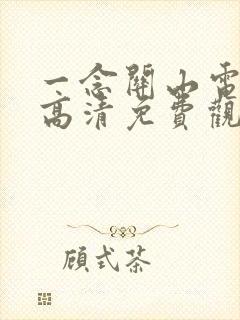 一念關山電
高清免費觀
顧式茶